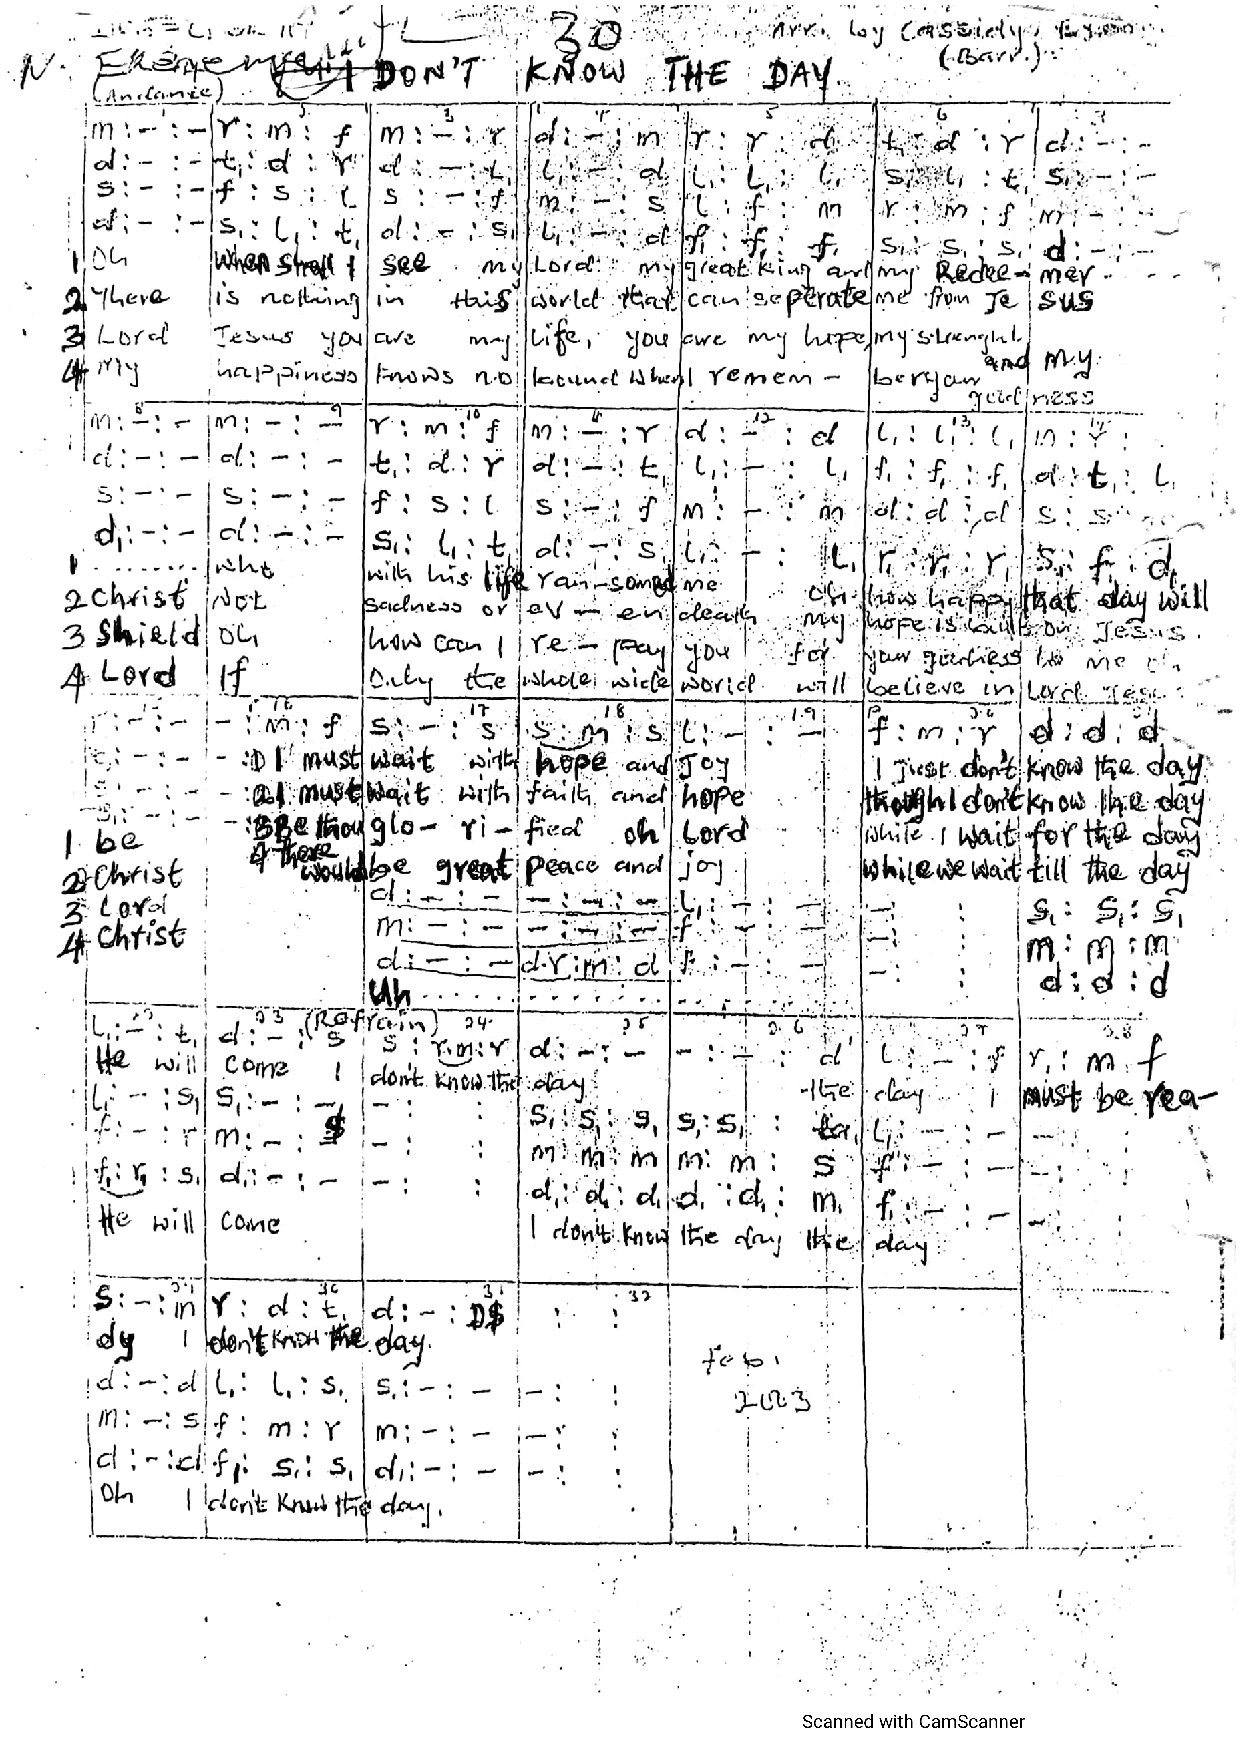 30
Arr. by Cassidy
(Barr.)
N.
I DON'T KNOW THE DAY
(Andante)
m:-:- r:m:f m:-:r d:-:m r:r:d t,:d:r d:-:-
d:-:- t,:d:r d:-:t, l,:-:d l,:l,:l, s,:l,:t, s,:-:-
s:-:- f:s:l s:-:f m:-:s l:f:m r:m:f m:-:-
d:-:- s,:l,:t, d:-:s, l,:-:d f,:f,:f, s,:s,:s, d:-:-
1 Oh when shall I see my Lord my great king and my Redee-mer
2 There is nothing in this world that can seperate me from Je sus
3 Lord Jesus you are my life, you are my hope, my strenght and my
4 My happiness knows no bound when I remem- ber your goodness
m:-:- m:-:- r:m:f m:-:r d:-:d l,:l,:l, m:r:
d:-:- d:-:- t,:d:r d:-:t, l,:-:l, f,:f,:f, d:t,:l,
s:-:- s:-:- f:s:l s:-:f m:-:m d:d:d s:s
d,:-:- d:-:- s,:l,:t, d:-:s, l,:-:l, r,:r,:r, s,:f,:d,
1 ........ who with his life ran-somed me Oh how happy that day will
2 Christ Not sadness or ev-en death my hope is built on Jesus
3 Shield Oh how can I re-pay you for your goodness to me
4 Lord If Only the whole wide world will believe in Lord
:m:f s:-:s s:m:s l:-:- f:m:r d:d:d
1 I must wait with hope and joy I just don't know the day
2 I must wait with faith and hope though I don't know the day
3 Be thou glo-ri-fied oh Lord while I wait for the day
1 be
4 There would be great peace and joy while we wait till the day
2 Christ
d:-:- -:-:- l,:-:- -: : s,:s,:s,
3 Lord
m:-:- -:-:- f:-:- -: : m:m:m
4 Christ
d:-:- d.r:m:d f:-:- -: : d:d:d
Uh........
(Refrain)
l,:-:t, d:-:s s:r.m:r d:-:- -:-:d' l:-:f r:m:f
He will come I don't know the day the day I must be rea-
l,:-:s, s,:-:- -: : s,:s,:s, s,:s,: l,:-:- -: :
f:-:r m:-: -: : m:m:m m:m:s f:-:- -: :
f,:r,:s, d,:-:- -: : d,:d,:d, d,:d,:m, f,:-:- -: :
He will come I don't know the day the day
s:-:m r:d:t, d:-: D$
dy I don't know the day.
Feb.
d:-:d l,:l,:s, s,:-:- -: :
2003
m:-:s f:m:r m:-:- -: :
d:-:d f,:s,:s, d,:-:- -: :
Oh I don't know the day.
Scanned with CamScanner